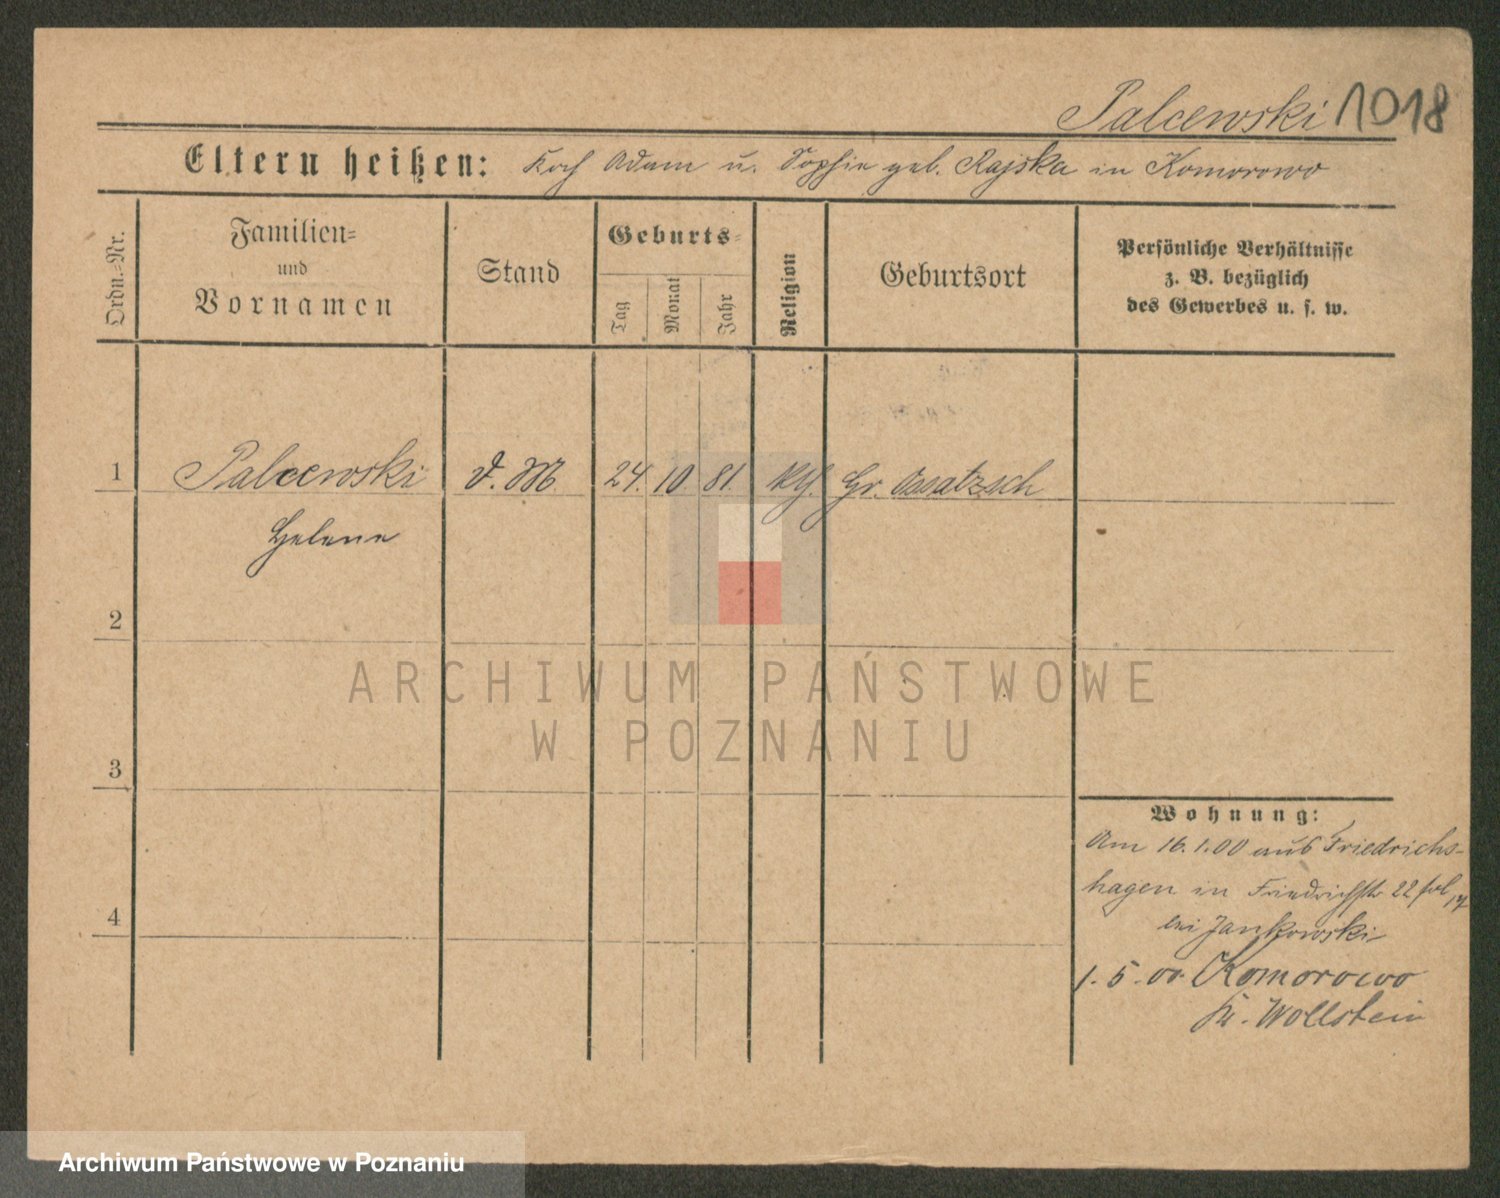 Palcewski 1018
Eltern heißen: Koch Adam u. Sophie geb. Rajska in Komorowo
Ordn.-Nr.
Familien-
und
Vornamen
Stand
Geburts-
Tag
Monat
Jahr
Religion
Geburtsort
Persönliche Verhältnisse
z. B. bezüglich
des Gewerbes u. s. w.
1 Palcewski d. M. 24. 10 81. kth. Gr.
Helene
2
ARCHIWUM PAŃSTWOWE
W POZNANIU
3
Wohnung:
Am 16.1.00 aus Friedrichs-
hagen in Friedrichstr 22
4
bei Jankowski
1. 5. 00. Komorowo
Kr. Wollstein
Archiwum Państwowe w Poznaniu